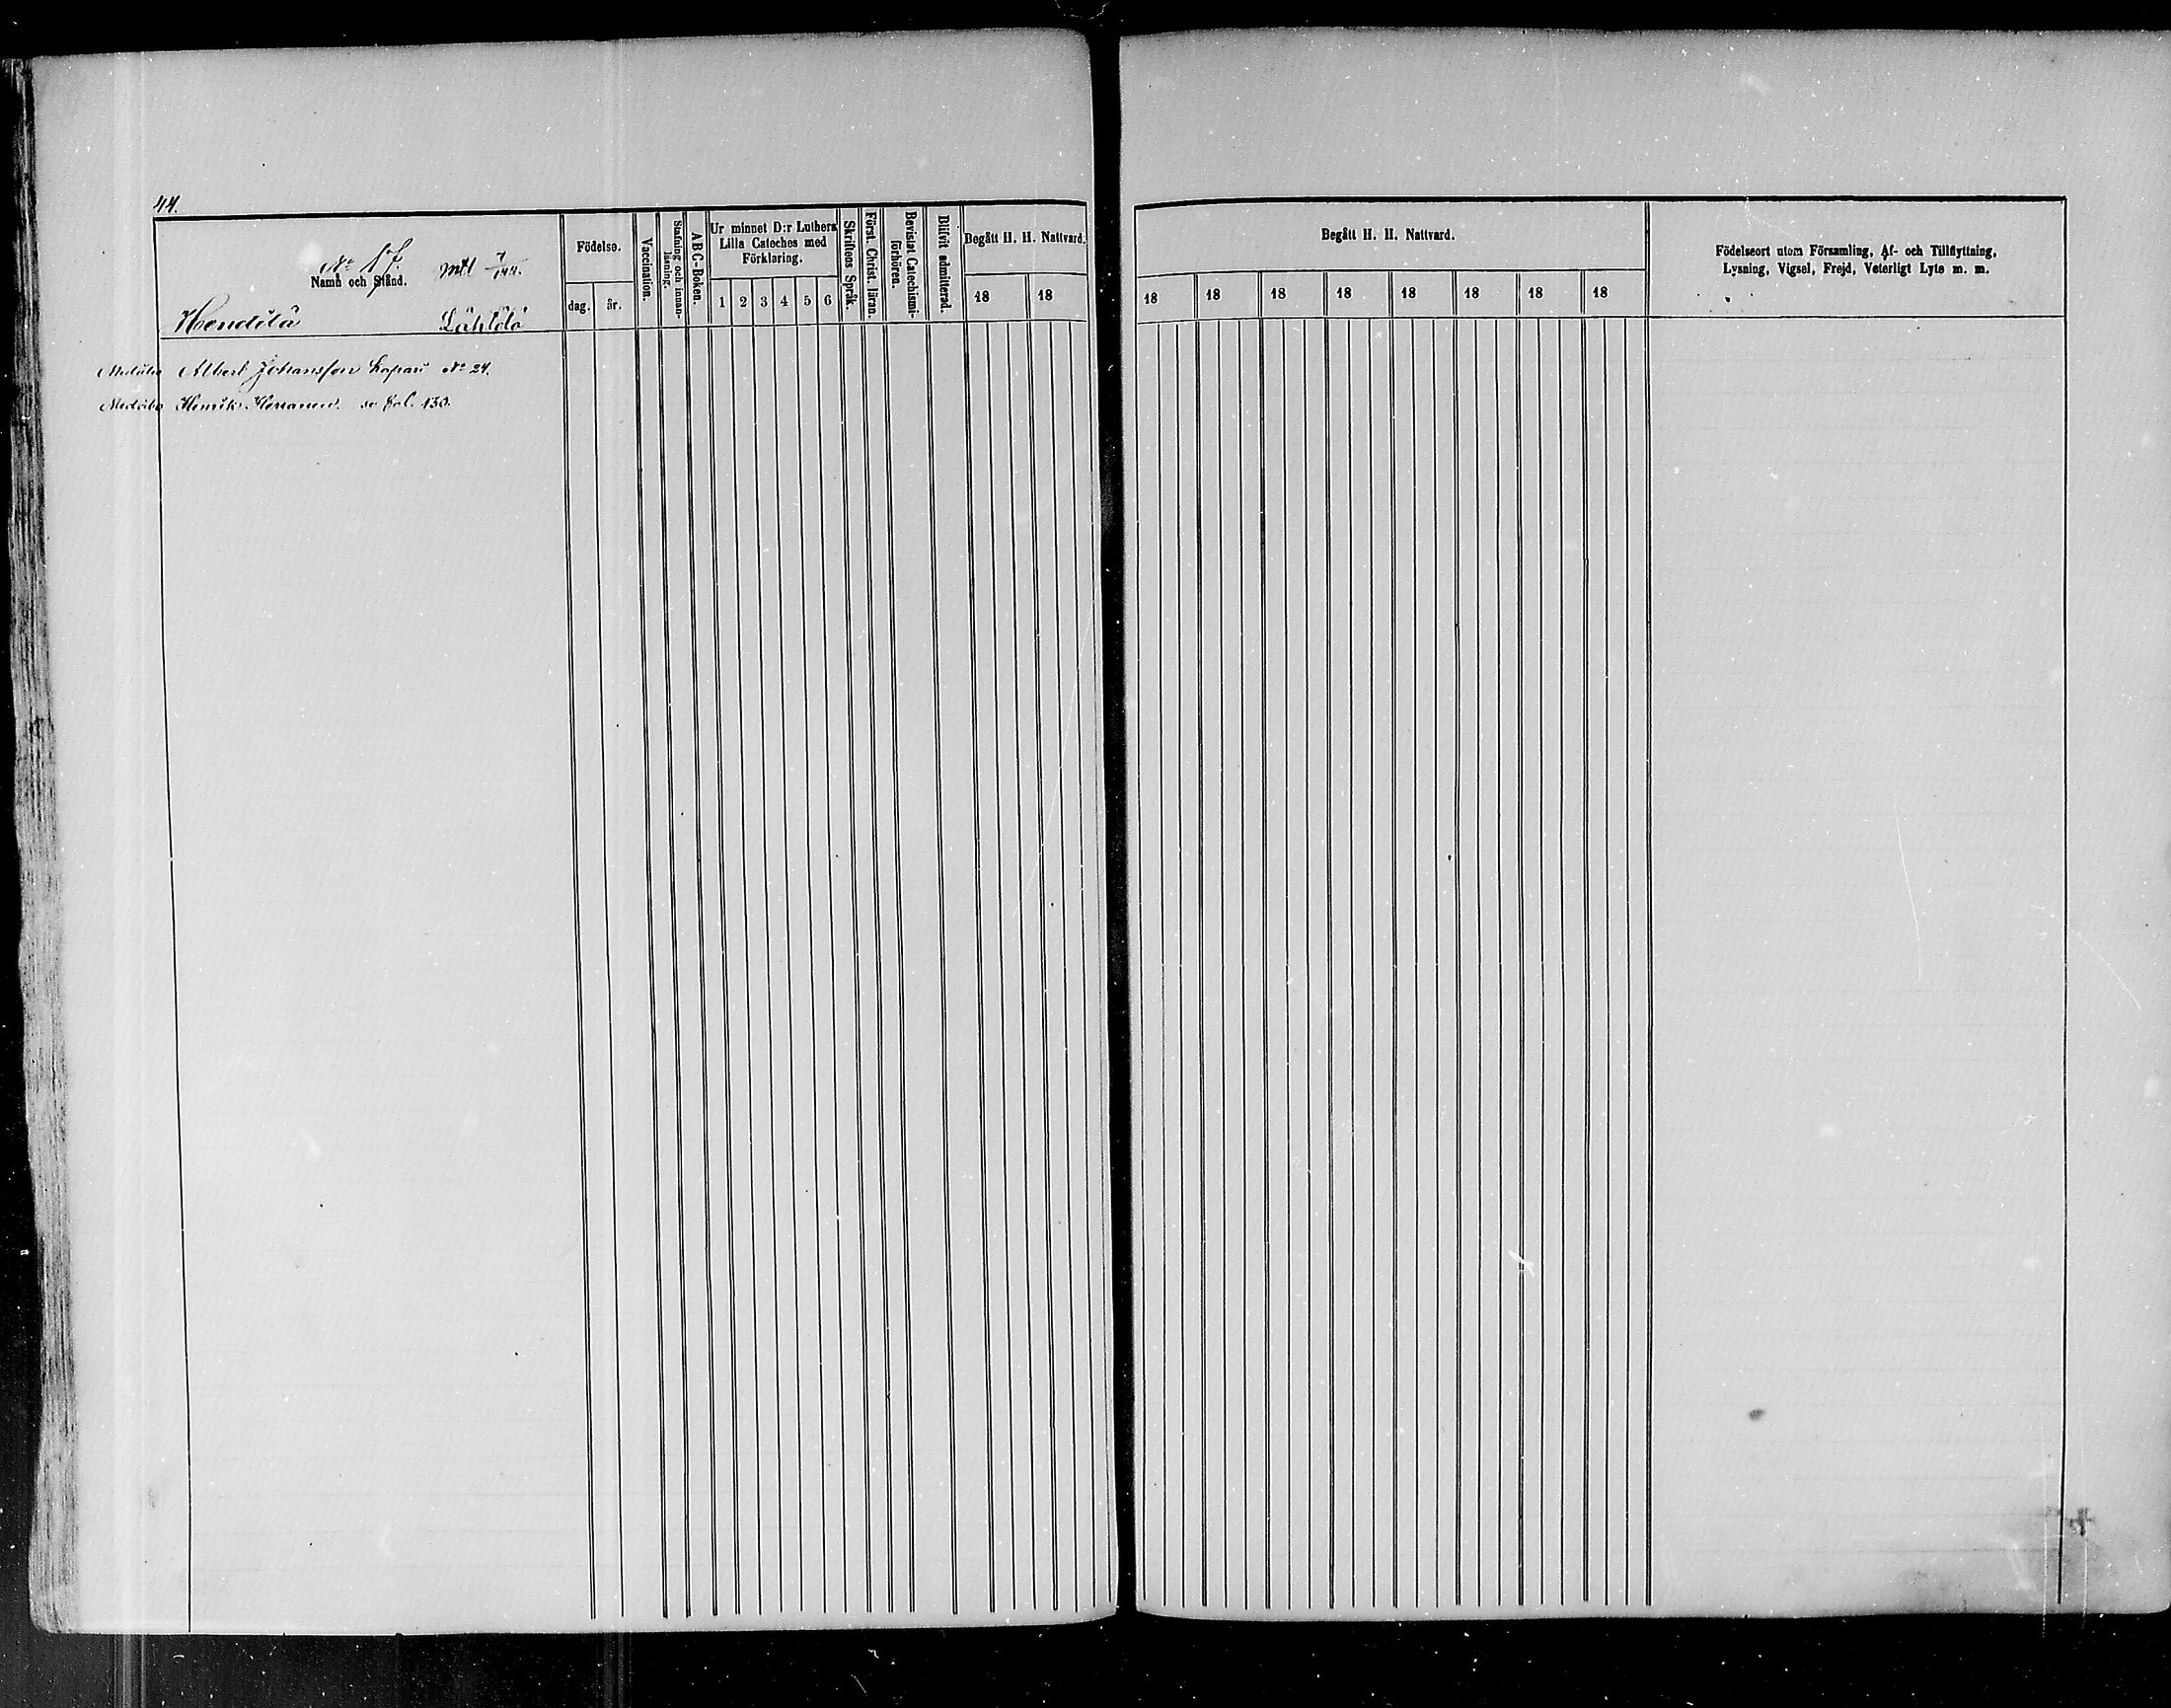 44.
Nº 17. mtl 7/144.
Namn och Stånd.
Hendilä Lähtölö
Albert Johansson Lapari Nº 24.
Henrik se fol. 130.
Födelse.
dag. år.
Vaccination.
Stafning och innan-
läsning.
A B C-Boken.
Ur minnet D:r Luthers
Lilla Cateches med
Förklaring.
1 2 3 4 5 6
Skriftens Språk.
Först. Christ. läran.
Bevistat Catechismi-
förhören.
Blifvit admitterad.
Begått H. H. Nattvard.
18 18
Begått H. H. Nattvard.
18 18 18 18 18 18 18 18
Födelseort utom Församling, Af- och Tillflyttning,
Lysning, Vigsel, Frejd, Veterligt Lyte m. m.